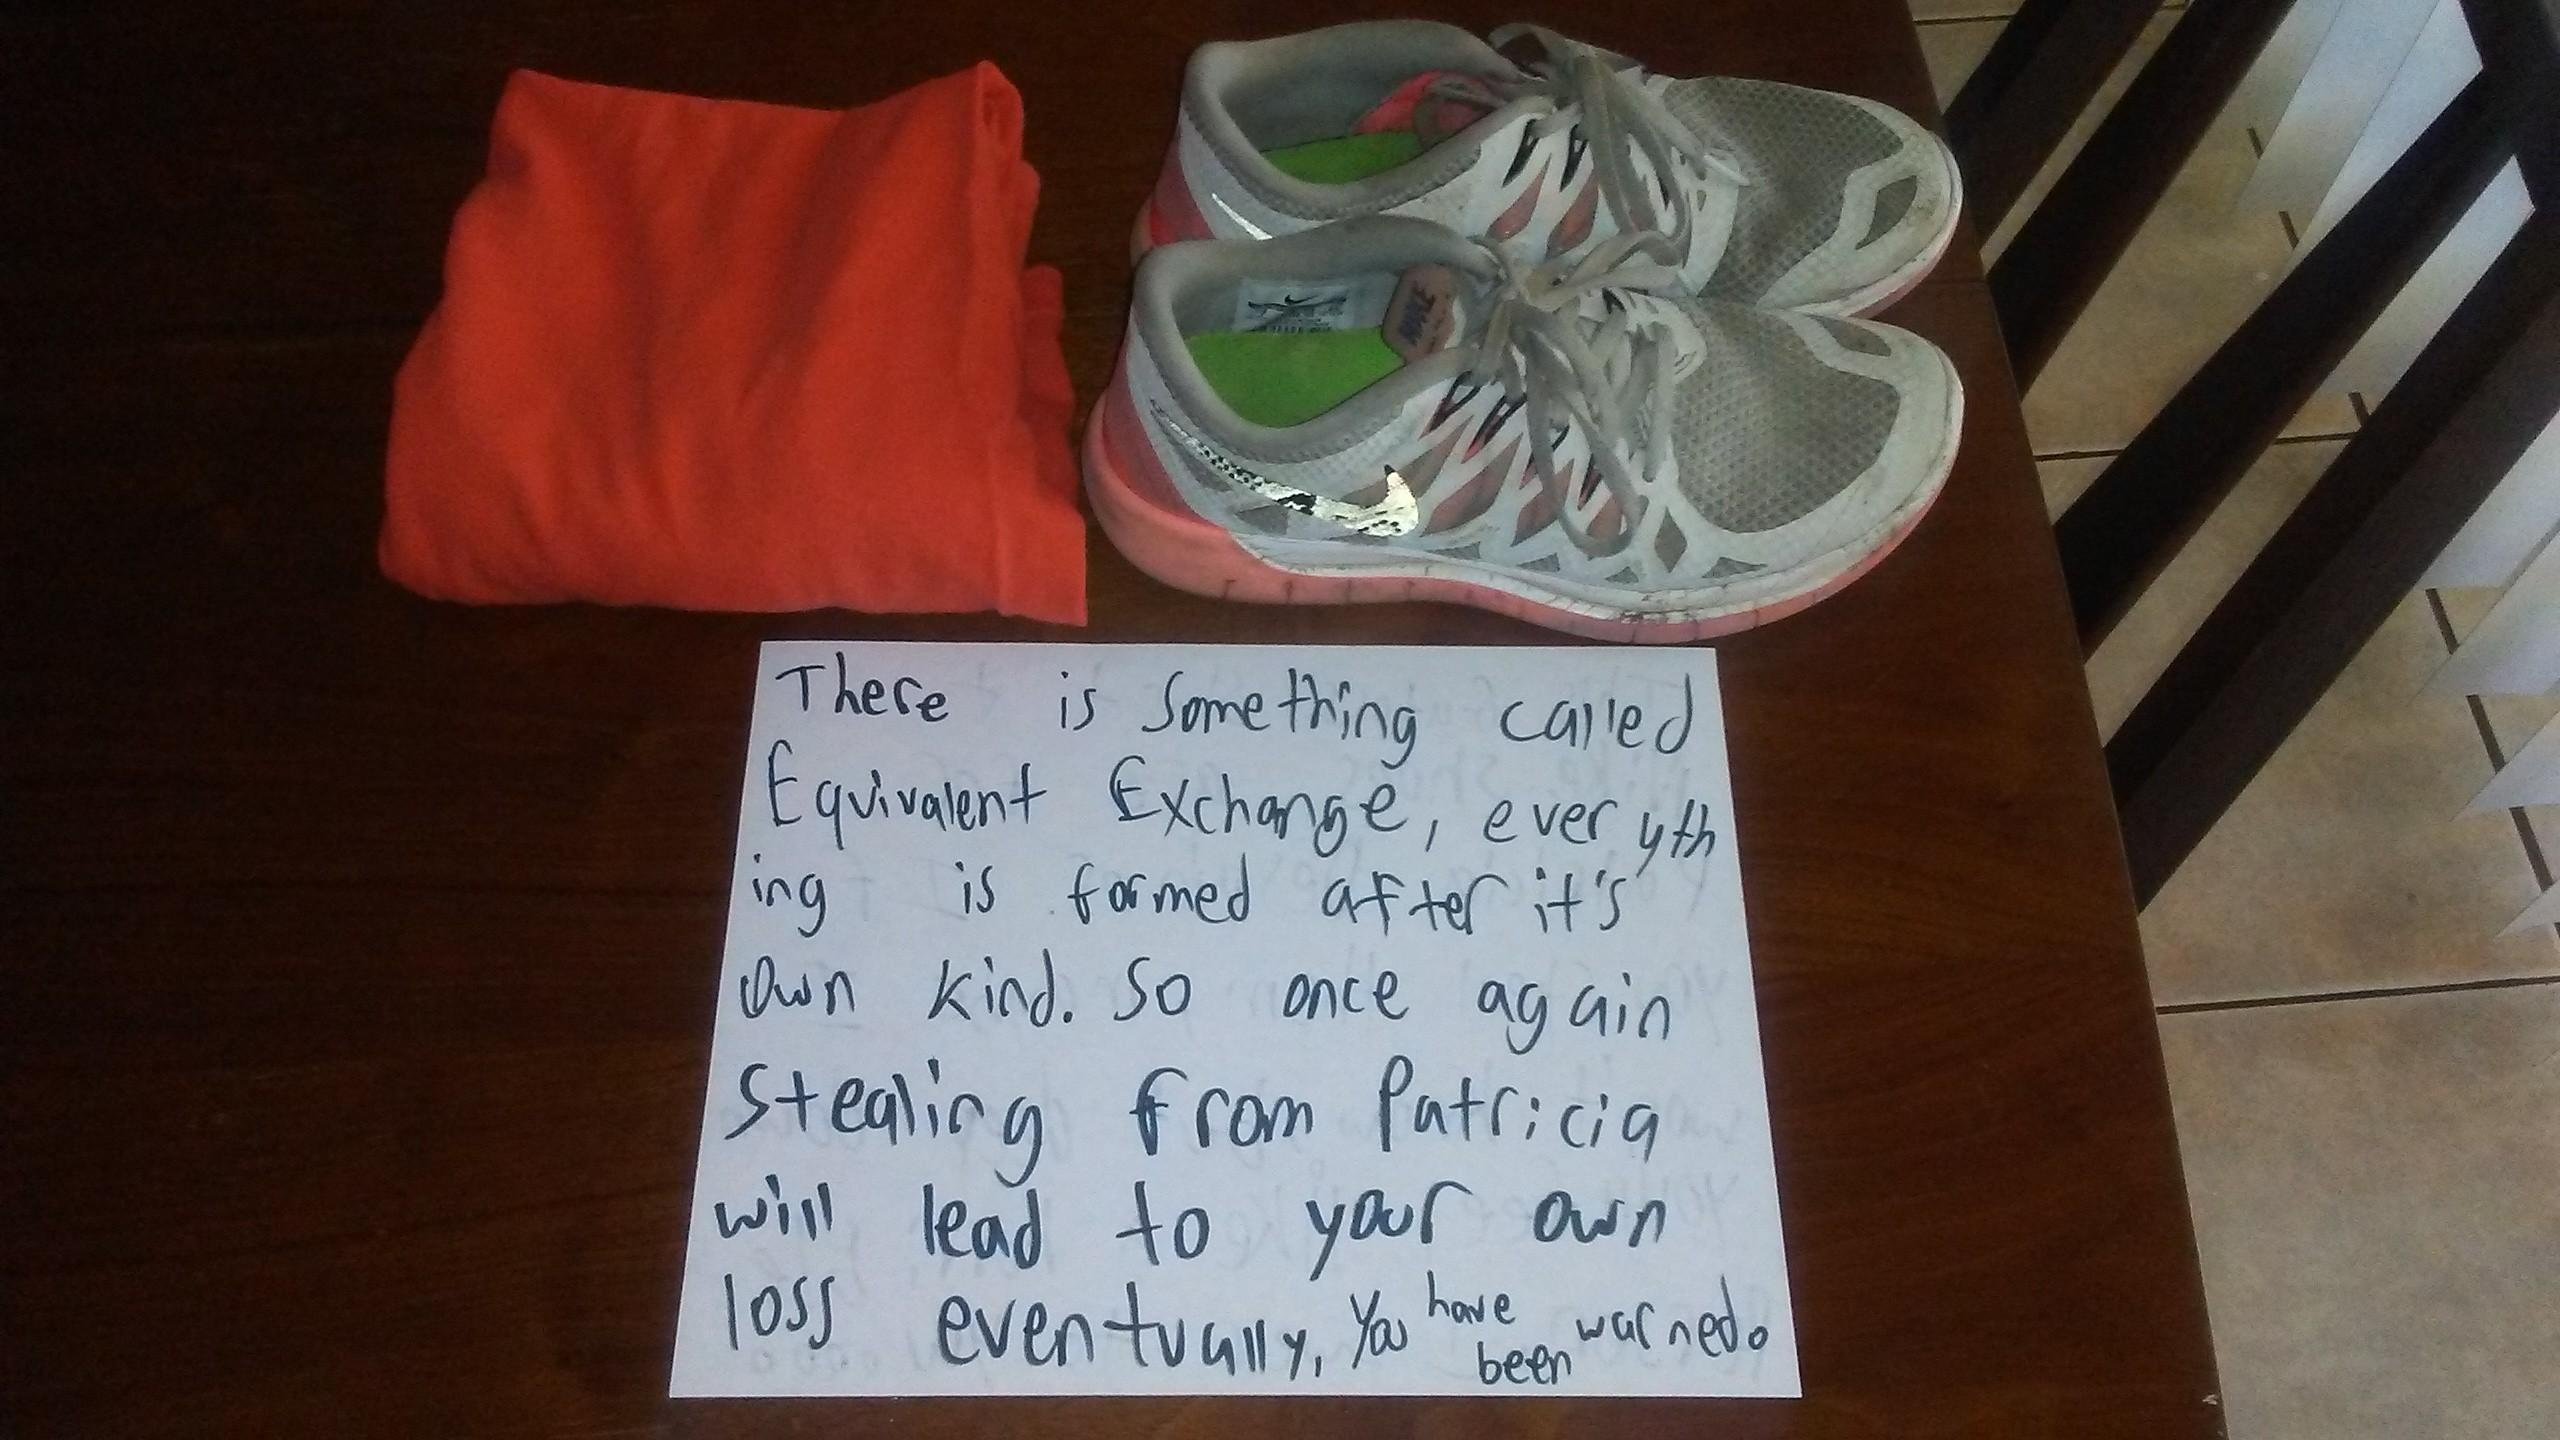 NIKE
There is something called
Equivalent Exchange, everyth
ing is formed after it's
own kind. So once again
stealing from Patricia
will lead to your own
loss eventually, You have been warned.